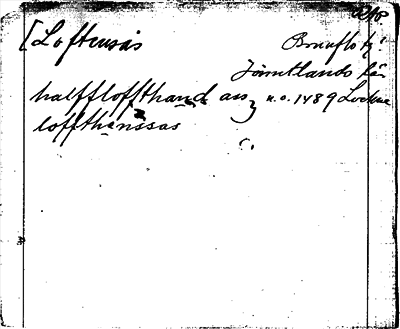 [Loftensås Brunflo tg!
Jämtlands län
halffloffthand as n.o. 1489 Lockne
loffthenssas